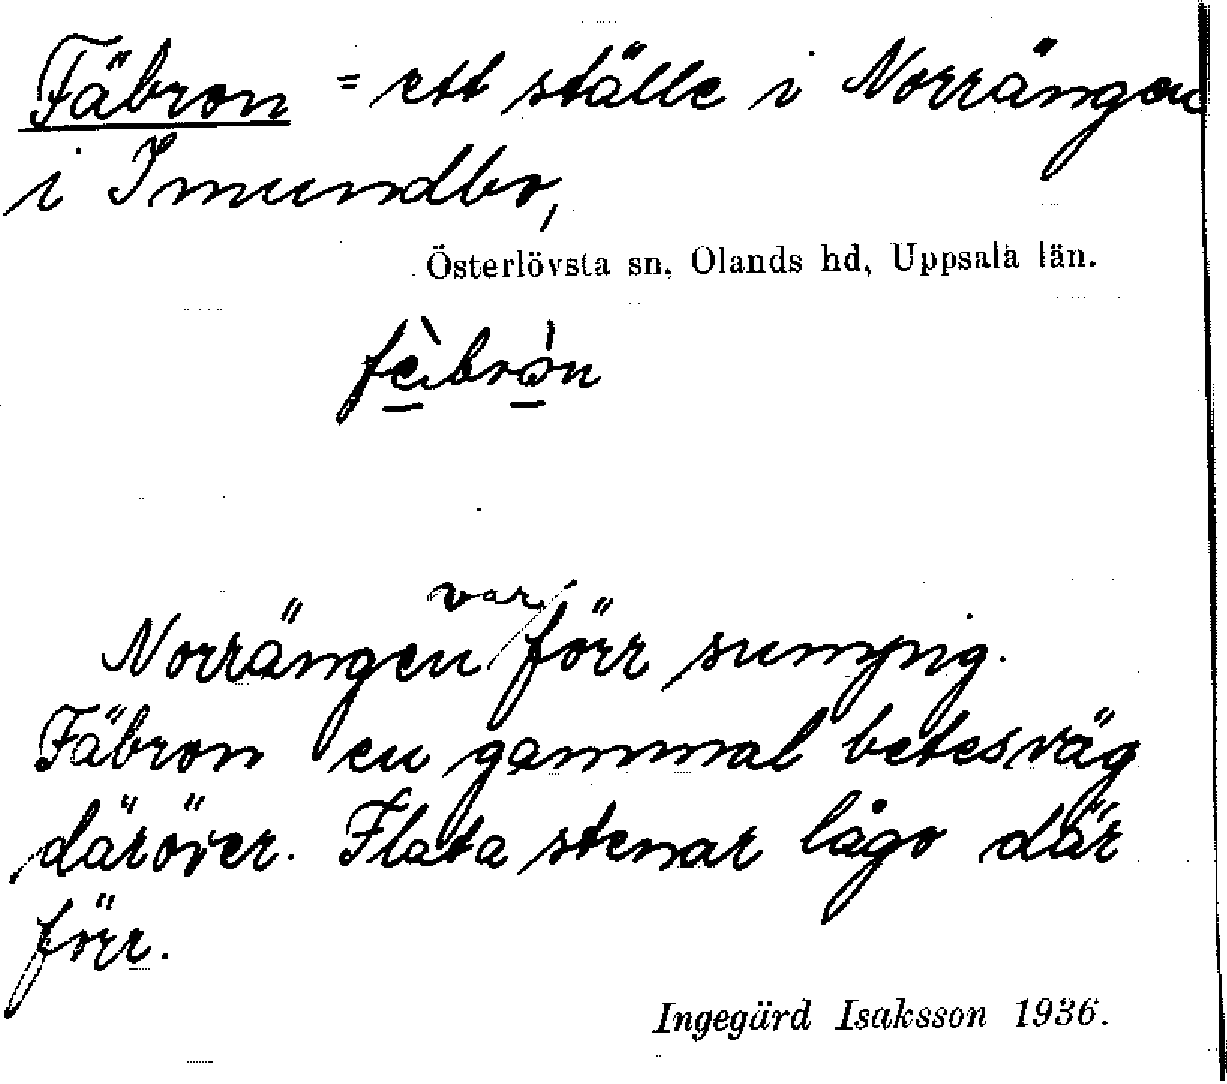 Fäbron = ett ställe i Norrängen
i Imundbo,
Österlövsta sn, Olands hd, Uppsala län.
fè̠brò̠n
Norrängen var förr sumpig.
Fäbron en gammal betesväg
däröver. Flata stenar lågo där
förr.
Ingegärd Isaksson 1936.